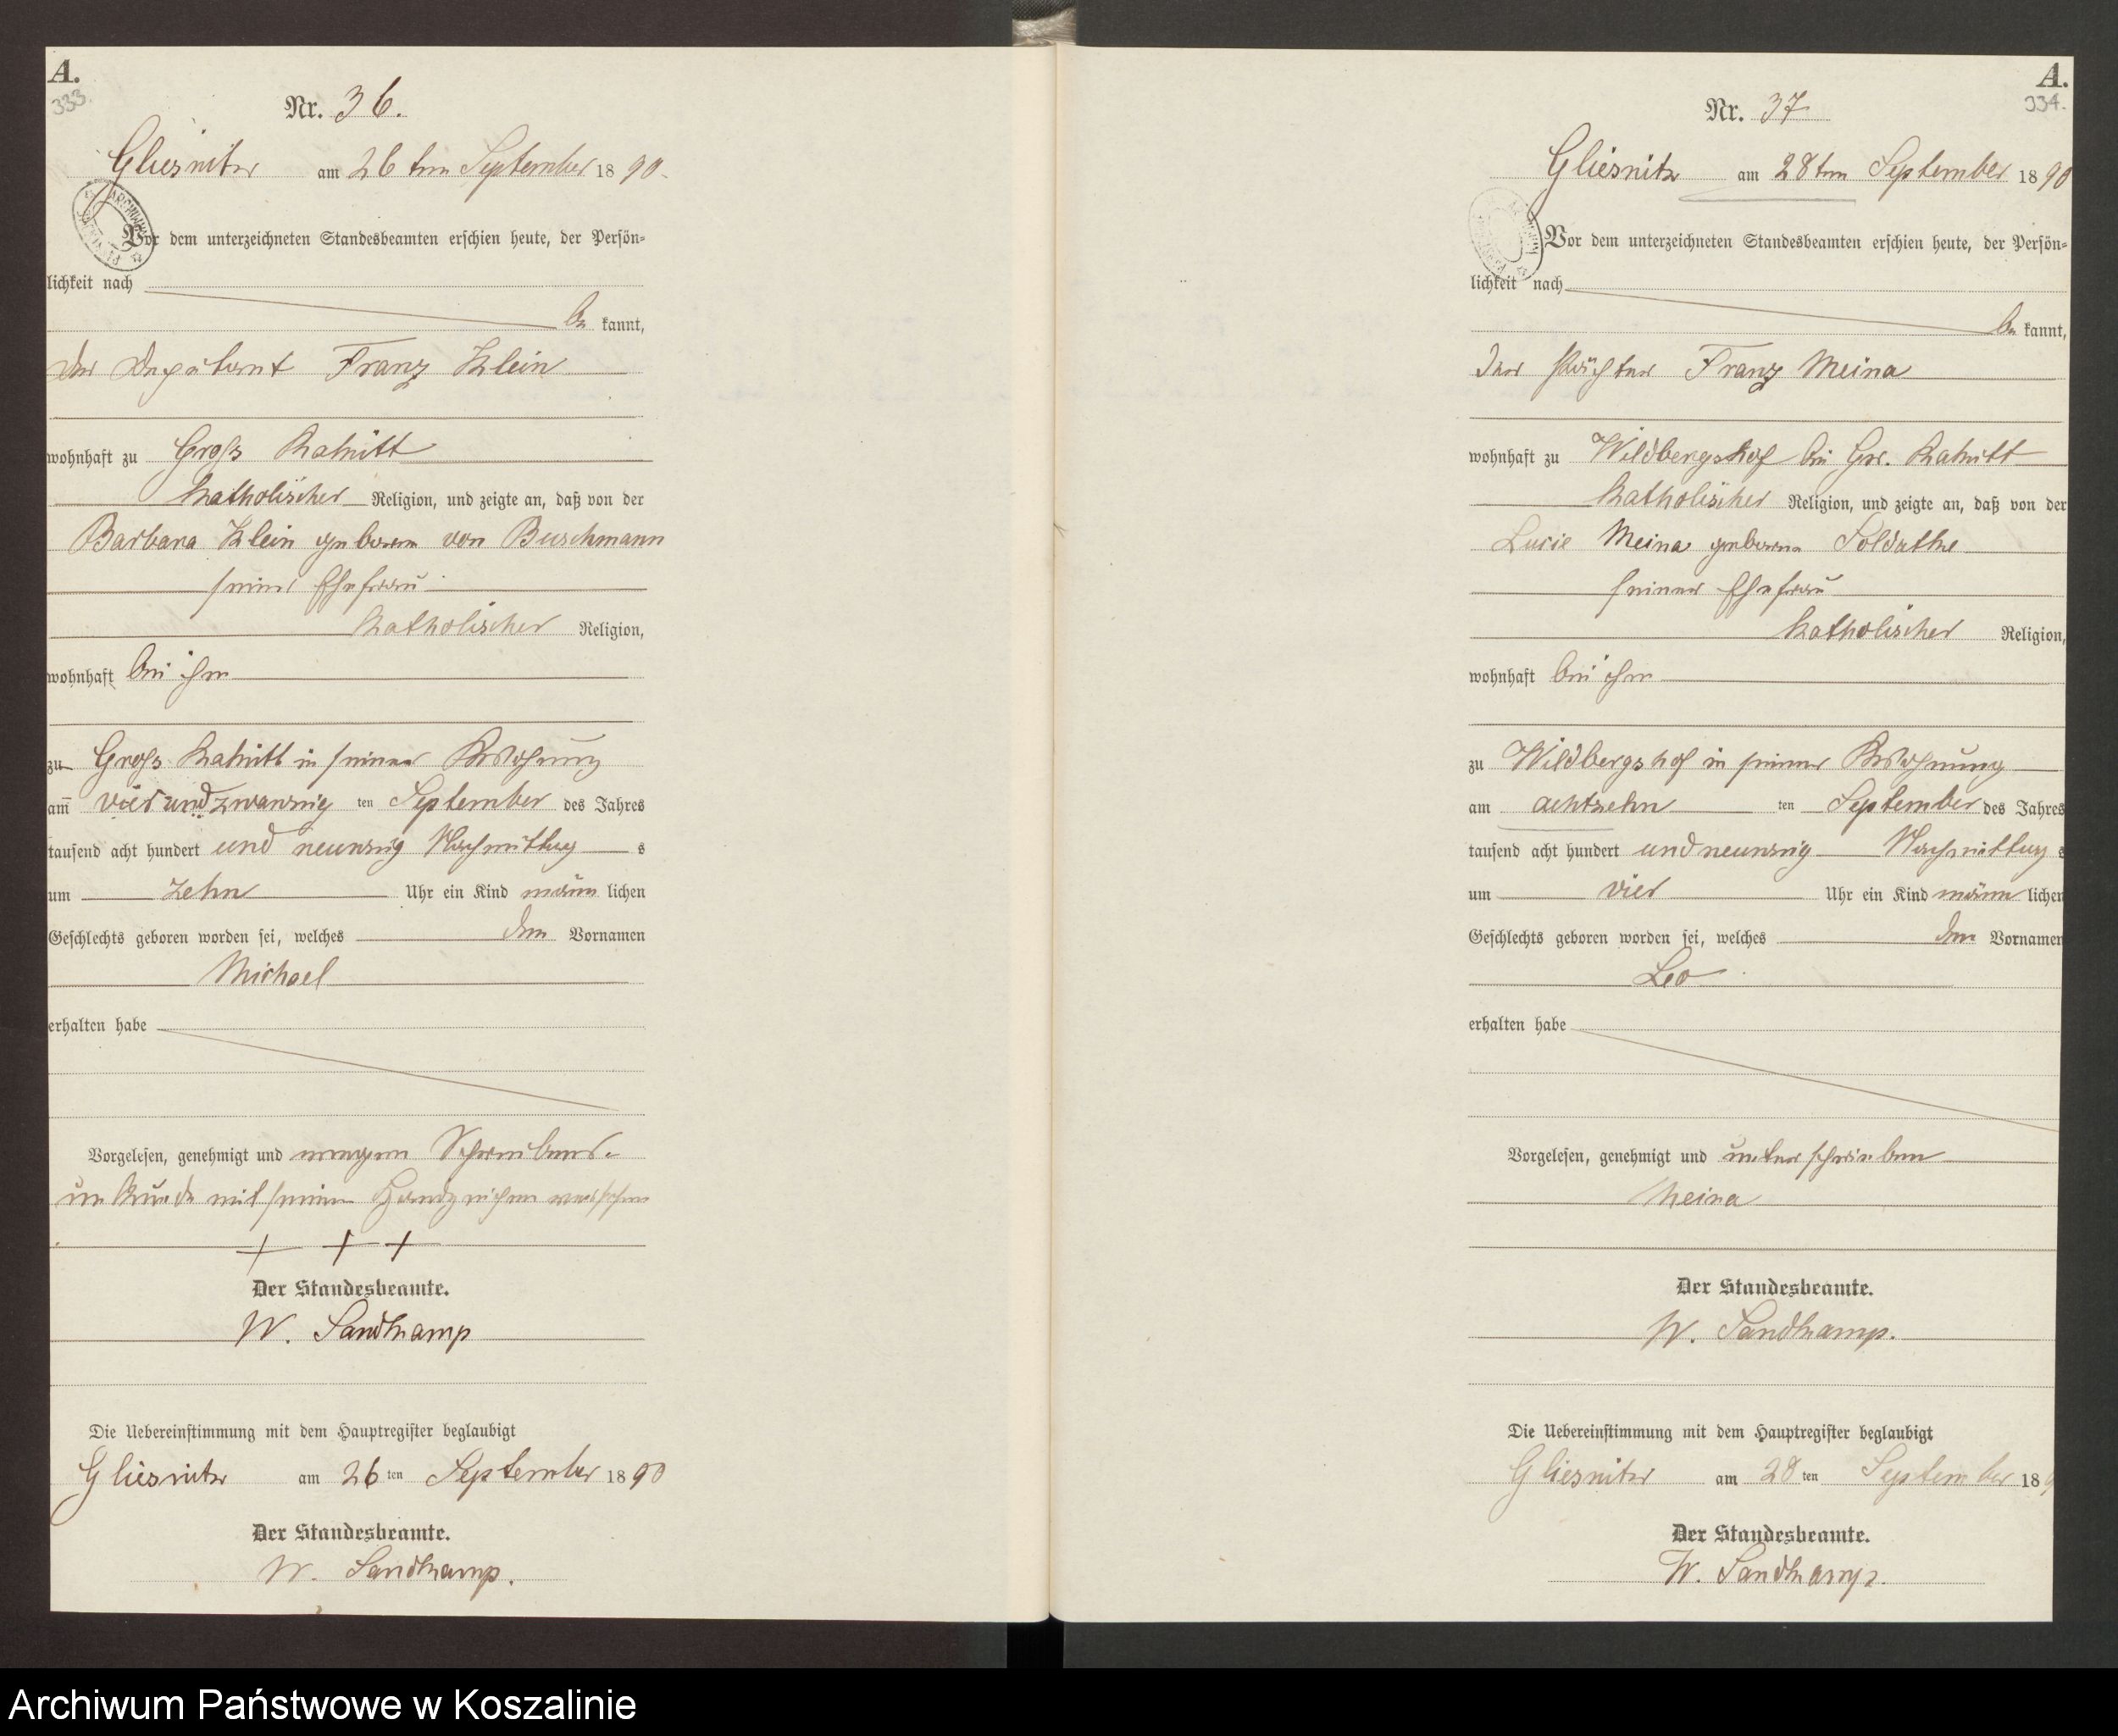 A.
333.
Nr. 36.
Gliesnitz am 26ten September 1890.
Vor dem unterzeichneten Standesbeamten erschien heute, der Persön-
lichkeit nach
be kannt,
der Deputant Franz Klein
wohnhaft zu Groß Rakitt
katholischer Religion, und zeigte an, daß von der
Barbara Klein geborene von Buschmann
seiner Ehefrau
katholischer Religion,
wohnhaft bei ihm
zu Groß Rakitt in seiner Behausung
am vierundzwanzig ten September des Jahres
tausend acht hundert und neunzig Nachmittag s
um zehn Uhr ein Kind männ lichen
Geschlechts geboren worden sei, welches den Vornamen
Michael
erhalten habe
Vorgelesen, genehmigt und wegen Schreibens-
unkunde mit seinem Handzeichen versehen
+ + +
Der Standesbeamte.
W. Sandkamp
Die Uebereinstimmung mit dem Hauptregister beglaubigt
Gliesnitz am 26ten September 1890
Der Standesbeamte.
W. Sandkamp.
A.
334.
Nr. 37
Gliesnitz am 28ten September 1890
Vor dem unterzeichneten Standesbeamten erschien heute, der Persön-
lichkeit nach
be kannt,
der Pächter Franz Meina
wohnhaft zu Wildbergshof bei Gr. Rakitt
katholischer Religion, und zeigte an, daß von der
Lucie Meina geborene Soldathe
seiner Ehefrau
katholischer Religion,
wohnhaft bei ihm
zu Wildbergshof in seiner Behausung
am achtzehn ten September des Jahres
tausend acht hundert und neunzig Nachmittag s
um vier Uhr ein Kind männ lichen
Geschlechts geboren worden sei, welches den Vornamen
Leo
erhalten habe
Vorgelesen, genehmigt und unterschrieben
Meina
Der Standesbeamte.
W. Sandkamp.
Die Uebereinstimmung mit dem Hauptregister beglaubigt
Gliesnitz am 28ten September 189
Der Standesbeamte.
W. Sandkamp.
Archiwum Państwowe w Koszalinie